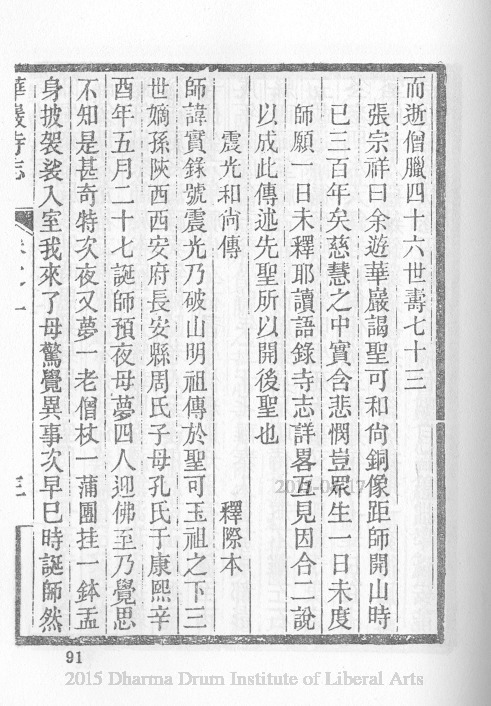 而逝僧臘四十六世壽七十三
張宗祥曰余遊華巖謁聖可和尙銅像距師開山時
已三百年矣慈慧之中實含悲憫豈眾生一日未度
師願一日未釋耶讀語錄寺志詳畧互見因合二說
以成此傳述先聖所以開後聖也
震光和尙傳 釋際本
師諱實錄號震光乃破山明祖傳於聖可玉祖之下三
世嫡孫陝西西安府長安縣周氏子母孔氏于康熙辛
酉年五月二十七誕師預夜母夢四人迎佛至乃覺思
不知是甚奇特次夜又夢一老僧杖一蒲團挂一鉢盂
身披袈裟入室我來了母驚覺異事次早巳時誕師然
華巖寺志 卷之一 三
91
2015 Dharma Drum Institute of Liberal Arts